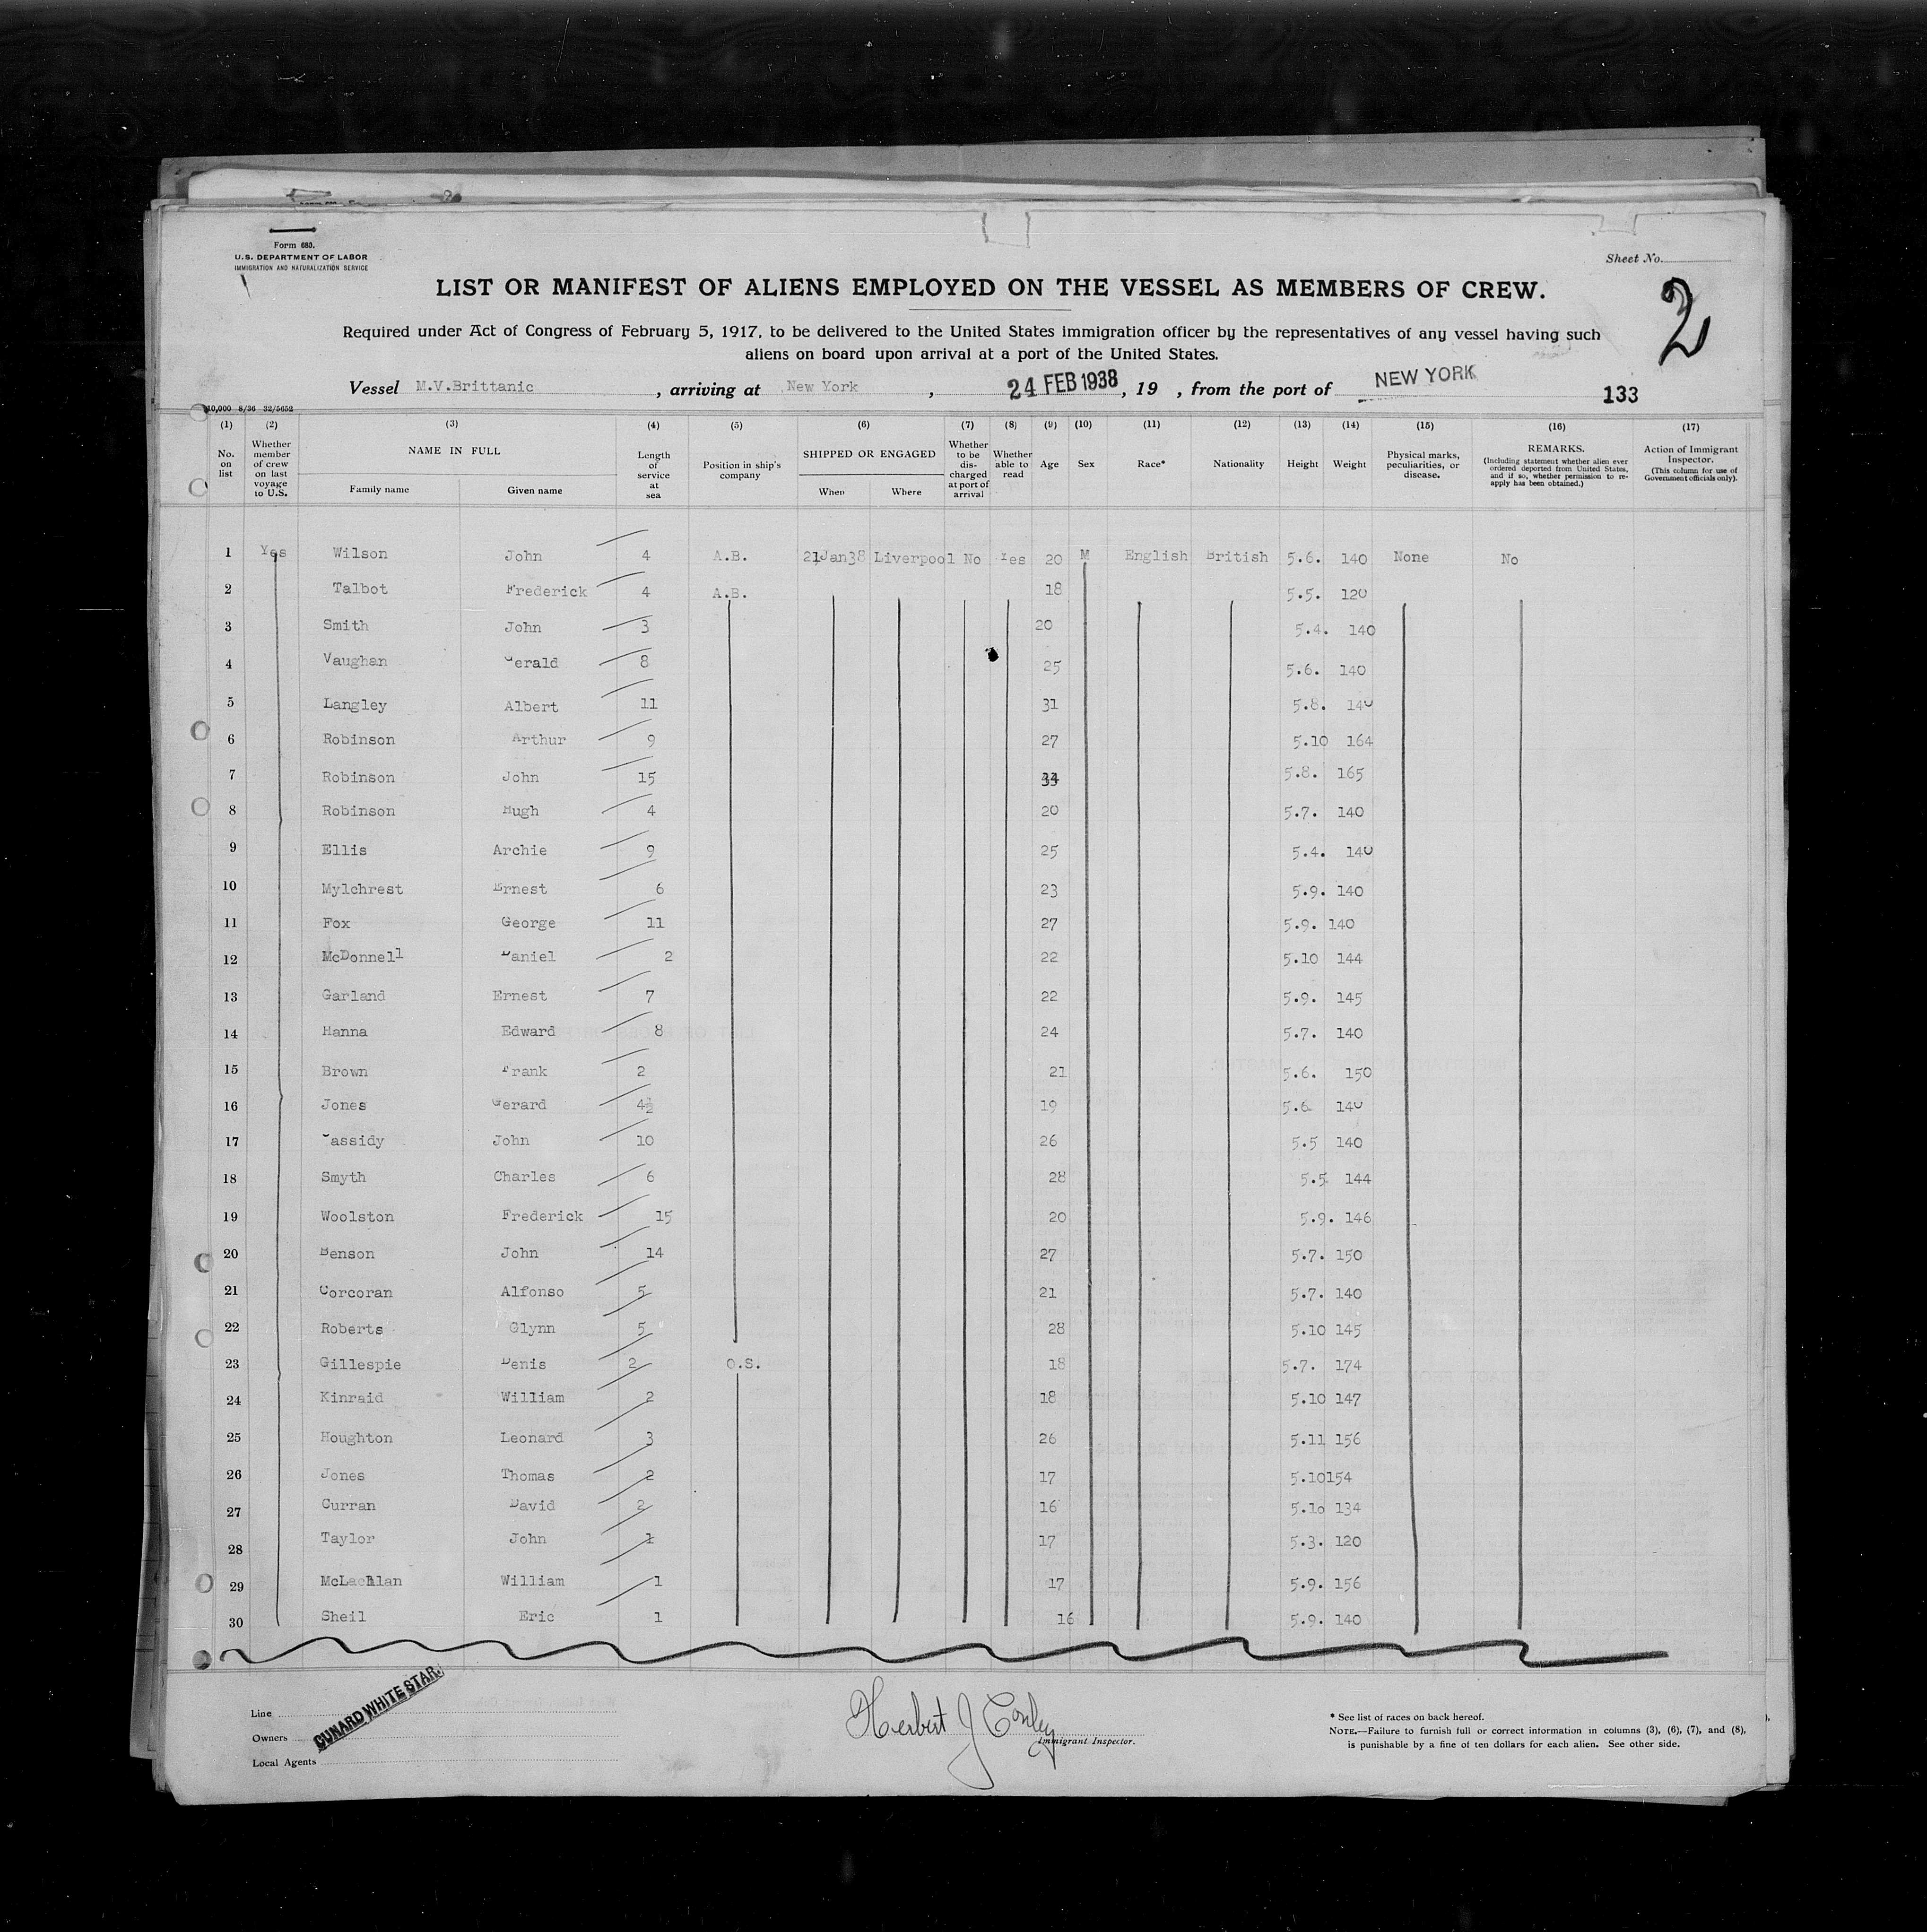 Form 680.
U.S. DEPARTMENT OF LABOR
IMMIGRATION AND NATURALIZATION SERVICE
Sheet No.
2
LIST OR MANIFEST OF ALIENS EMPLOYED ON THE VESSEL AS MEMBERS OF CREW.
Required under Act of Congress of February 5, 1917, to be delivered to the United States immigration officer by the representatives of any vessel having such
aliens on board upon arrival at a port of the United States.
Vessel M.V.Brittanic, arriving at New York, 24 FEB 1938, 19 , from the port of NEW YORK 133
10,000 8/36 32/5652
(1) (2) (3) (4) (5) (6) (7) (8) (9) (10) (11) (12) (13) (14) (15) (16) (17)
No. on list
Whether member of crew on last voyage to U.S.
NAME IN FULL
Family name Given name
Length of service at sea
Position in ship's company
SHIPPED OR ENGAGED
When Where
Whether to be discharged at port of arrival
Whether able to read
Age
Sex
Race*
Nationality
Height
Weight
Physical marks, peculiarities, or disease.
REMARKS.
(Including statement whether alien ever ordered deported from United States, and if so, whether permission to reapply has been obtained.)
Action of Immigrant Inspector.
(This column for use of Government officials only).
1 Yes Wilson John 4 A.B. 21Jan38 Liverpool No Yes 20 M English British 5.6. 140 None No
2 Talbot Frederick 4 A.B. 18 5.5. 120
3 Smith John 3 20 5.4. 140
4 Vaughan Gerald 8 25 5.6. 140
5 Langley Albert 11 31 5.8. 140
6 Robinson Arthur 9 27 5.10 164
7 Robinson John 15 5.8. 165
8 Robinson Hugh 4 20 5.7. 140
9 Ellis Archie 9 25 5.4. 140
10 Mylchrest Ernest 6 23 5.9. 140
11 Fox George 11 27 5.9. 140
12 McDonnell Daniel 2 22 5.10 144
13 Garland Ernest 7 22 5.9. 145
14 Hanna Edward 8 24 5.7. 140
15 Brown Frank 2 21 5.6. 150
16 Jones Gerard 4½ 19 5.6 140
17 Cassidy John 10 26 5.5 140
18 Smyth Charles 6 28 5.5 144
19 Woolston Frederick 15 20 5.9. 146
20 Benson John 14 27 5.7. 150
21 Corcoran Alfonso 5 21 5.7. 140
22 Roberts Glynn 5 28 5.10 145
23 Gillespie Denis 2 O.S. 18 5.7. 174
24 Kinraid William 2 18 5.10 147
25 Houghton Leonard 3 26 5.11 156
26 Jones Thomas 2 17 5.10 154
27 Curran David 2 16 5.10 134
28 Taylor John 1 17 5.3. 120
29 McLachlan William 1 17 5.9. 156
30 Sheil Eric 1 16 5.9. 140
Line
Owners
Local Agents
CUNARD WHITE STAR.
Herbert J Conley
Immigrant Inspector.
* See list of races on back hereof.
NOTE.—Failure to furnish full or correct information in columns (3), (6), (7), and (8),
is punishable by a fine of ten dollars for each alien. See other side.